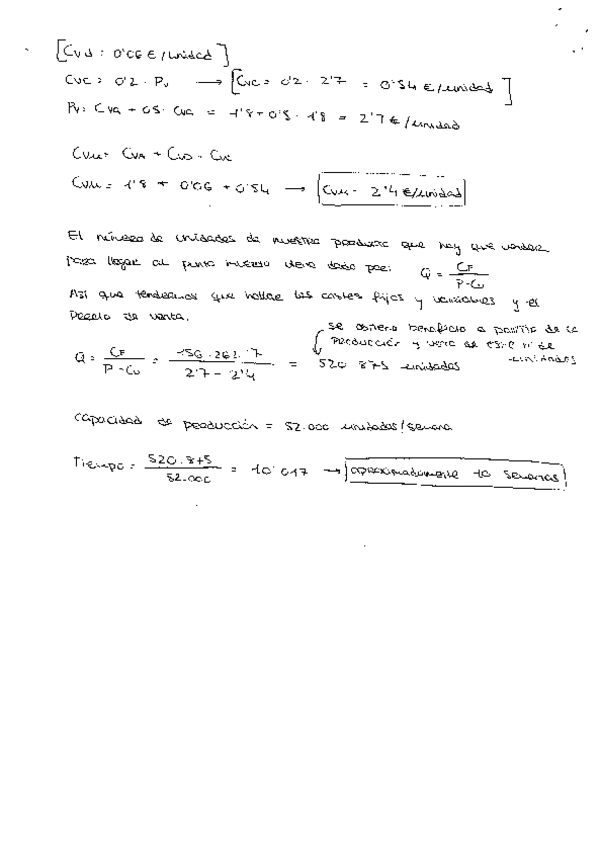 [Cvd : 0'06 € / unidad]
Cvc = 0'2 . Pv → [Cvc = 0'2 . 2'7 = 0'54 € /unidad]
Pv = Cva + 0'5 . Cva = 1'8 + 0'5 . 1'8 = 2'7 € /unidad
Cvu = Cva + Cvd + Cvc
Cvu = 1'8 + 0'06 + 0'54 → Cvu = 2'4 €/unidad
El número de unidades de nuestro producto que hay que vender
para llegar al punto muerto viene dado por: Q = CF / P - Cv
Así que tendremos que hallar los costes fijos y variables y el
precio de venta.
se obtiene beneficio a partir de la
producción y venta de este nº de
unidades
Q = CF / P - Cv = 156.262'7 / 2'7 - 2'4 = 520 875 unidades
Capacidad de producción = 52.000 unidades/semana
Tiempo = 520.875 / 52.000 = 10'017 → aproximadamente 10 semanas